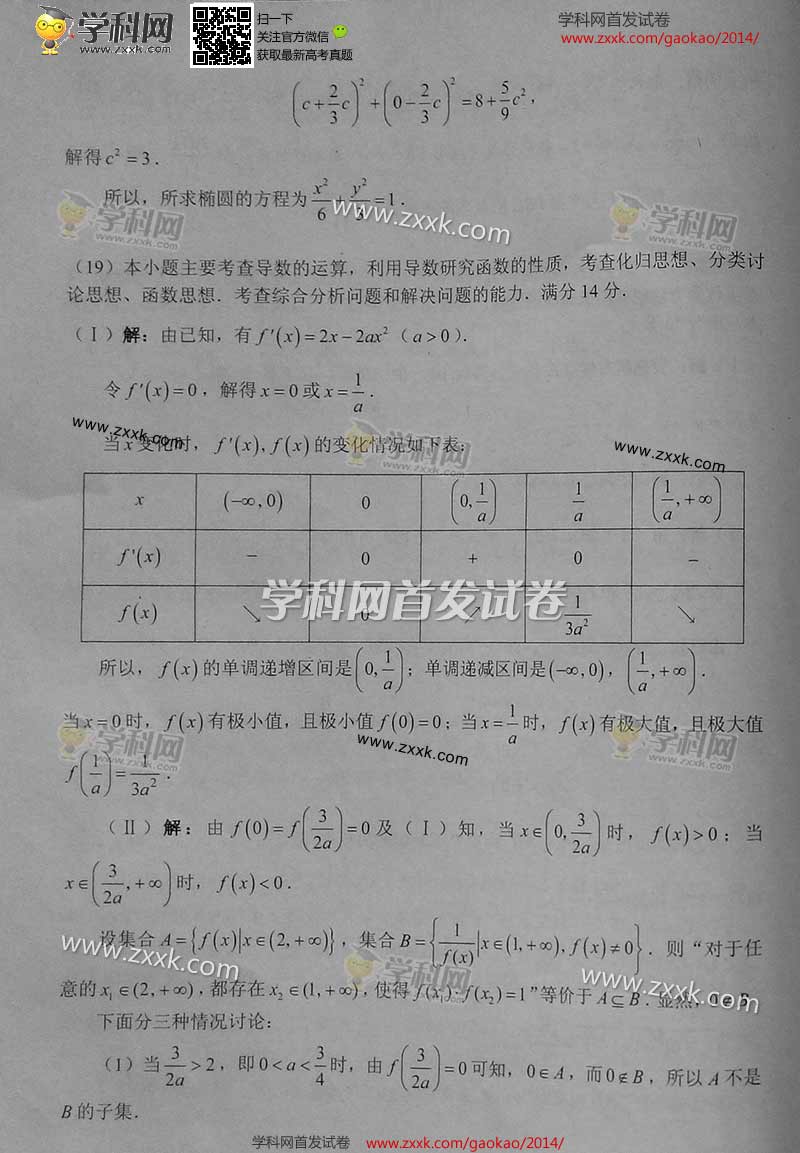 学科网
www.zxxk.com
扫一下
关注官方微信
获取最新高考真题
学科网首发试卷
www.zxxk.com/gaokao/2014/
(c+2/3c)²+(0-2/3c)²=8+5/9c²,
解得c²=3.
所以，所求椭圆的方程为x²/6+y²/3=1.
（19）本小题主要考查导数的运算，利用导数研究函数的性质，考查化归思想、分类讨
论思想、函数思想．考查综合分析问题和解决问题的能力．满分14分．
（Ⅰ）解：由已知，有f′(x)=2x-2ax²（a>0）．
令f′(x)=0，解得x=0或x=1/a．
当x变化时，f′(x),f(x)的变化情况如下表：
x (-∞,0) 0 (0,1/a) 1/a (1/a,+∞)
f′(x) - 0 + 0 -
f(x) ↘ 0 ↗ 1/3a² ↘
所以，f(x)的单调递增区间是(0,1/a)；单调递减区间是(-∞,0)，(1/a,+∞)．
当x=0时，f(x)有极小值，且极小值f(0)=0；当x=1/a时，f(x)有极大值，且极大值
f(1/a)=1/3a²．
（Ⅱ）解：由f(0)=f(3/2a)=0及（Ⅰ）知，当x∈(0,3/2a)时，f(x)>0；当
x∈(3/2a,+∞)时，f(x)<0．
设集合A={f(x)|x∈(2,+∞)}，集合B={1/f(x)|x∈(1,+∞),f(x)≠0}．则“对于任
意的x₁∈(2,+∞)，都存在x₂∈(1,+∞)，使得f(x₁)·f(x₂)=1”等价于A⊆B．显然，
下面分三种情况讨论：
（1）当3/2a>2，即0<a<3/4时，由f(3/2a)=0可知，0∈A，而0∉B，所以A不是
B的子集．
学科网首发试卷 www.zxxk.com/gaokao/2014/